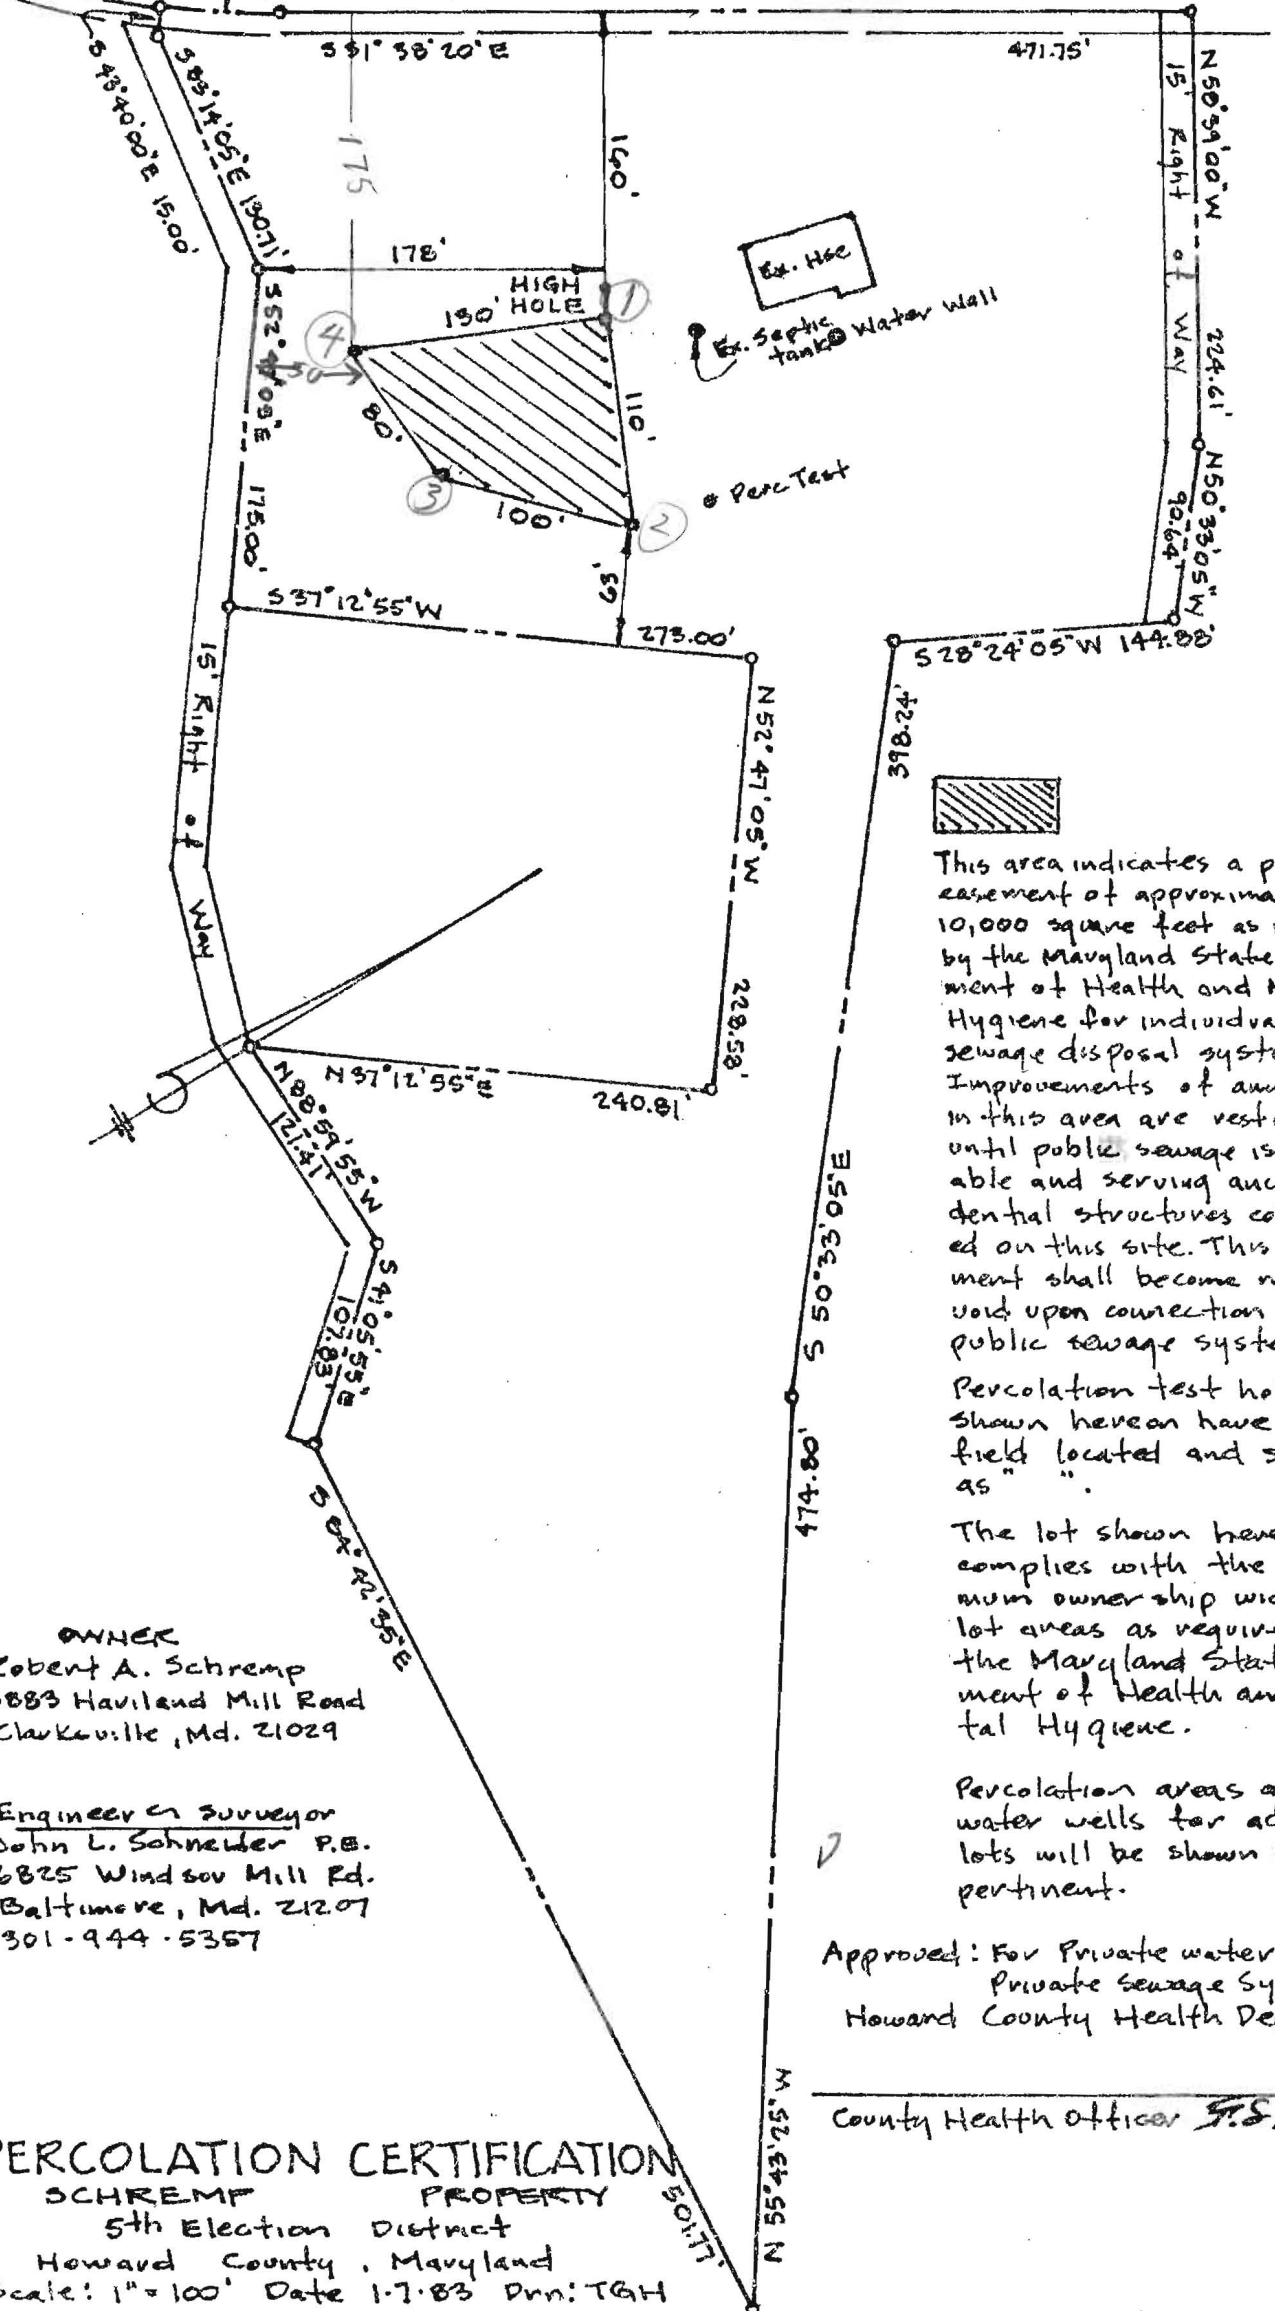 S 31° 38' 20" E
471.75'
S 43°40'00"E 15.00'
S 83°14'05"E 130.71'
175
160'
N 50°39'00"W
224.61'
15' Right of Way
178'
HIGH
HOLE
130'
1
4
Ex. Hse
Ex. Septic
tank
Water Wall
50
80'
110'
3
100'
2
Perc Test
69'
175.00'
N 50°33'05"W
90.64'
S 37°12'55"W
273.00'
S 28°24'05"W 144.88'
15' Right of Way
N 52°47'05"W
228.58'
398.24'
N 37°12'55"E
240.81'
N 88°59'55"W
121.41'
S 41°05'55"E
107.83'
S 50°33'05"E
474.80'
S 64°42'35"E
501.77'
N 55°43'25"W
This area indicates a p
easement of approxima
10,000 square feet as
by the Maryland State
ment of Health and
Hygiene for individua
sewage disposal syst
Improvements of any
in this area are rest
until public sewage is
able and serving any
dential structures co
ed on this site. This
ment shall become n
void upon connection
public sewage syste
Percolation test ho
shown hereon have
field located and s
as " ".
The lot shown here
complies with the
mum ownership wid
lot areas as require
the Maryland Stat
ment of Health an
tal Hygiene.
Percolation areas a
water wells for ad
lots will be shown
pertinent.
Approved: For Private water
Private Sewage Sy
Howard County Health De
County Health Officer
OWNER
Robert A. Schremp
883 Haviland Mill Road
Clarksville, Md. 21029
Engineer & Surveyor
John L. Schneider P.E.
6825 Windsor Mill Rd.
Baltimore, Md. 21207
301-944-5357
PERCOLATION CERTIFICATION
SCHREMP PROPERTY
5th Election District
Howard County, Maryland
Scale: 1"=100' Date 1.7.83 Drn: TGH